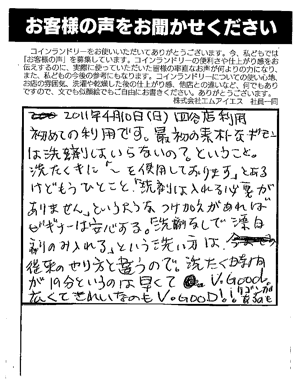 お客様の声をお聞かせください
コインランドリーをお使いいただいてありがとうございます。今、私どもでは
「お客様の声」を募集しています。コインランドリーの便利さや仕上がり感をお
伝えするのに、実際に使っていただいた皆様の率直なお声が何よりの力になり、
また、私どもの今後の参考にもなります。コインランドリーについての使い心地、
お店の雰囲気、洗濯や乾燥した後の仕上がり感、他店との違いなど、何でもあり
ですので、文でもお顔絵でもご自由にお書きください。ありがとうございます。
株式会社エムアイエス 社員一同
2011年4月10日(日) 四谷店利用
初めての利用です。最初の素朴なギモン
は洗剤はいらないの？ということ。
洗たくきに「〜を使用しております」とある
けどもうひとこと。「洗剤は入れる必要が
ありません。」というような つけ加えがあれば
ビギナーは安心する。「洗剤なしで漂白
剤のみ入れる」という洗い方は、
従来のやり方と違うので。洗たく時間
が19分というのは早くて V.Good.
広くてきれいなのも V.GOOD!!